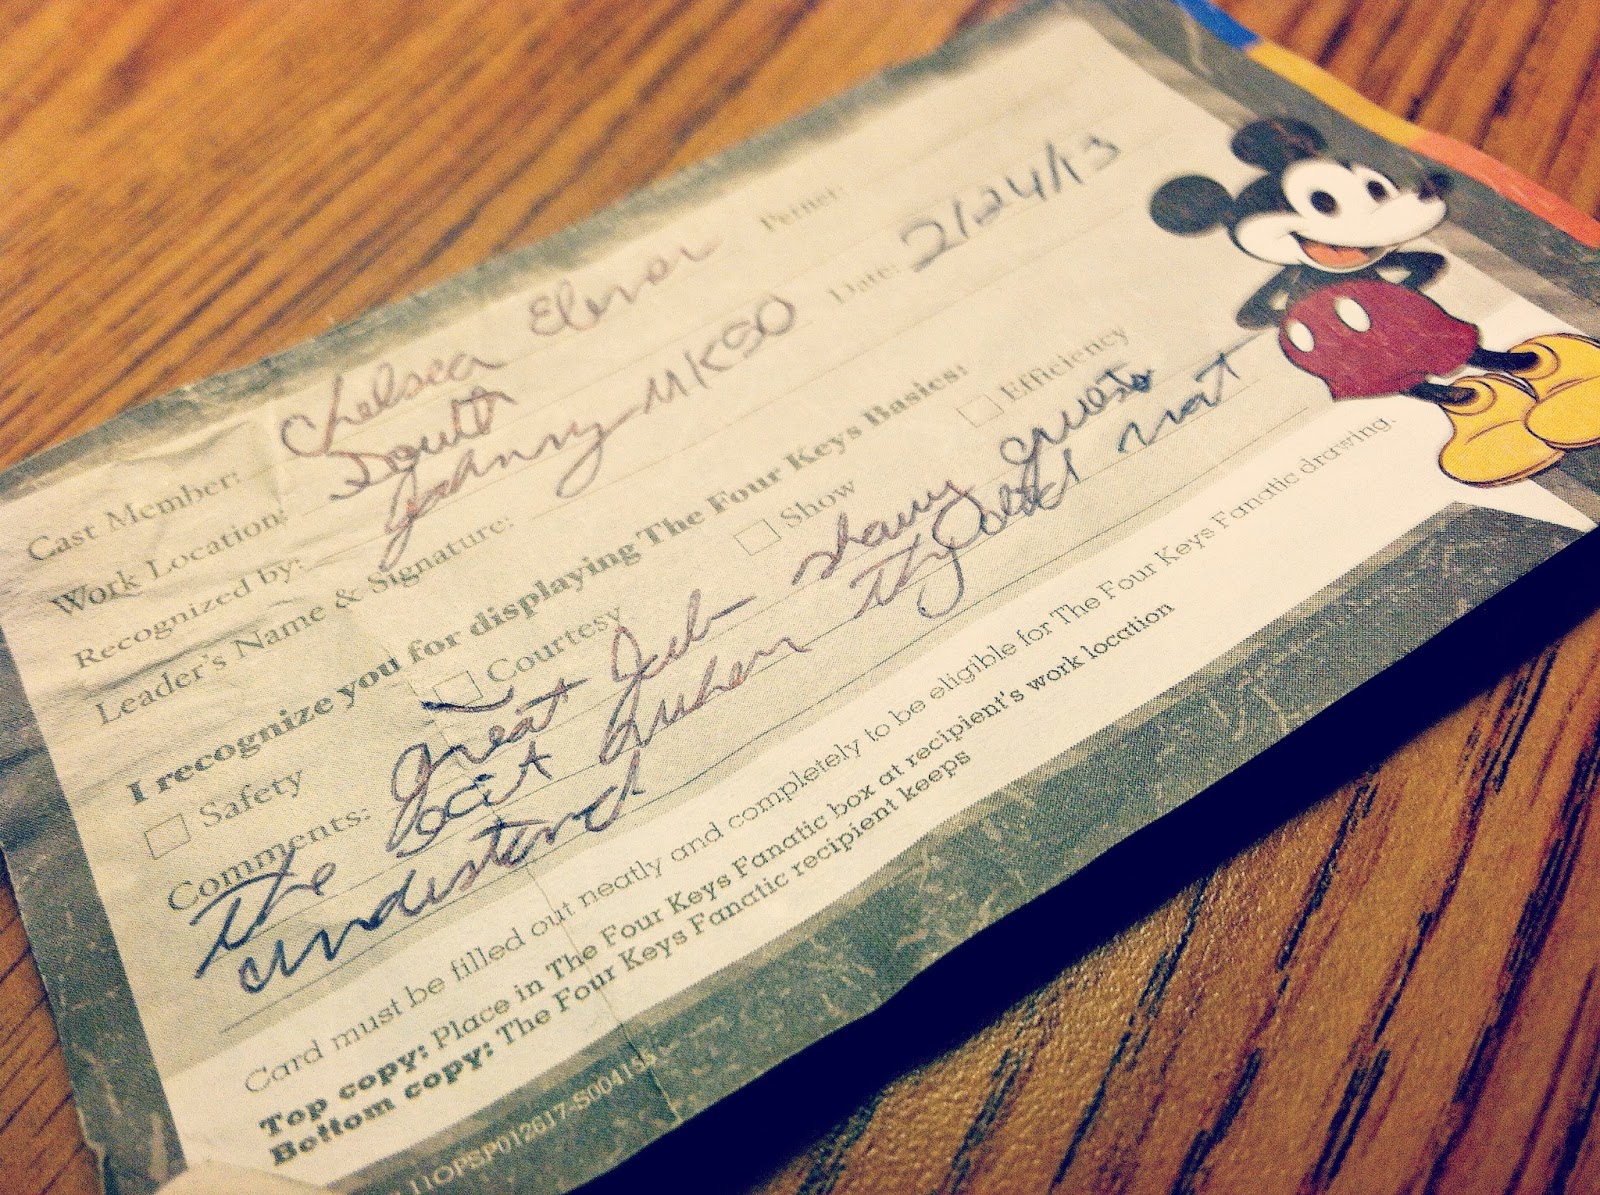 Cast Member: Chelsea Pernet:
Work Location: South
Recognized by: Johnny MKSO Date: 2/24/13
Leader's Name & Signature:
I recognize you for displaying The Four Keys Basics:
Safety Courtesy Show Efficiency
Comments: Great Job showing guests
the exit when they could not
understand
Card must be filled out neatly and completely to be eligible for The Four Keys Fanatic drawing.
Top copy: Place in The Four Keys Fanatic box at recipient's work location
Bottom copy: The Four Keys Fanatic recipient keeps